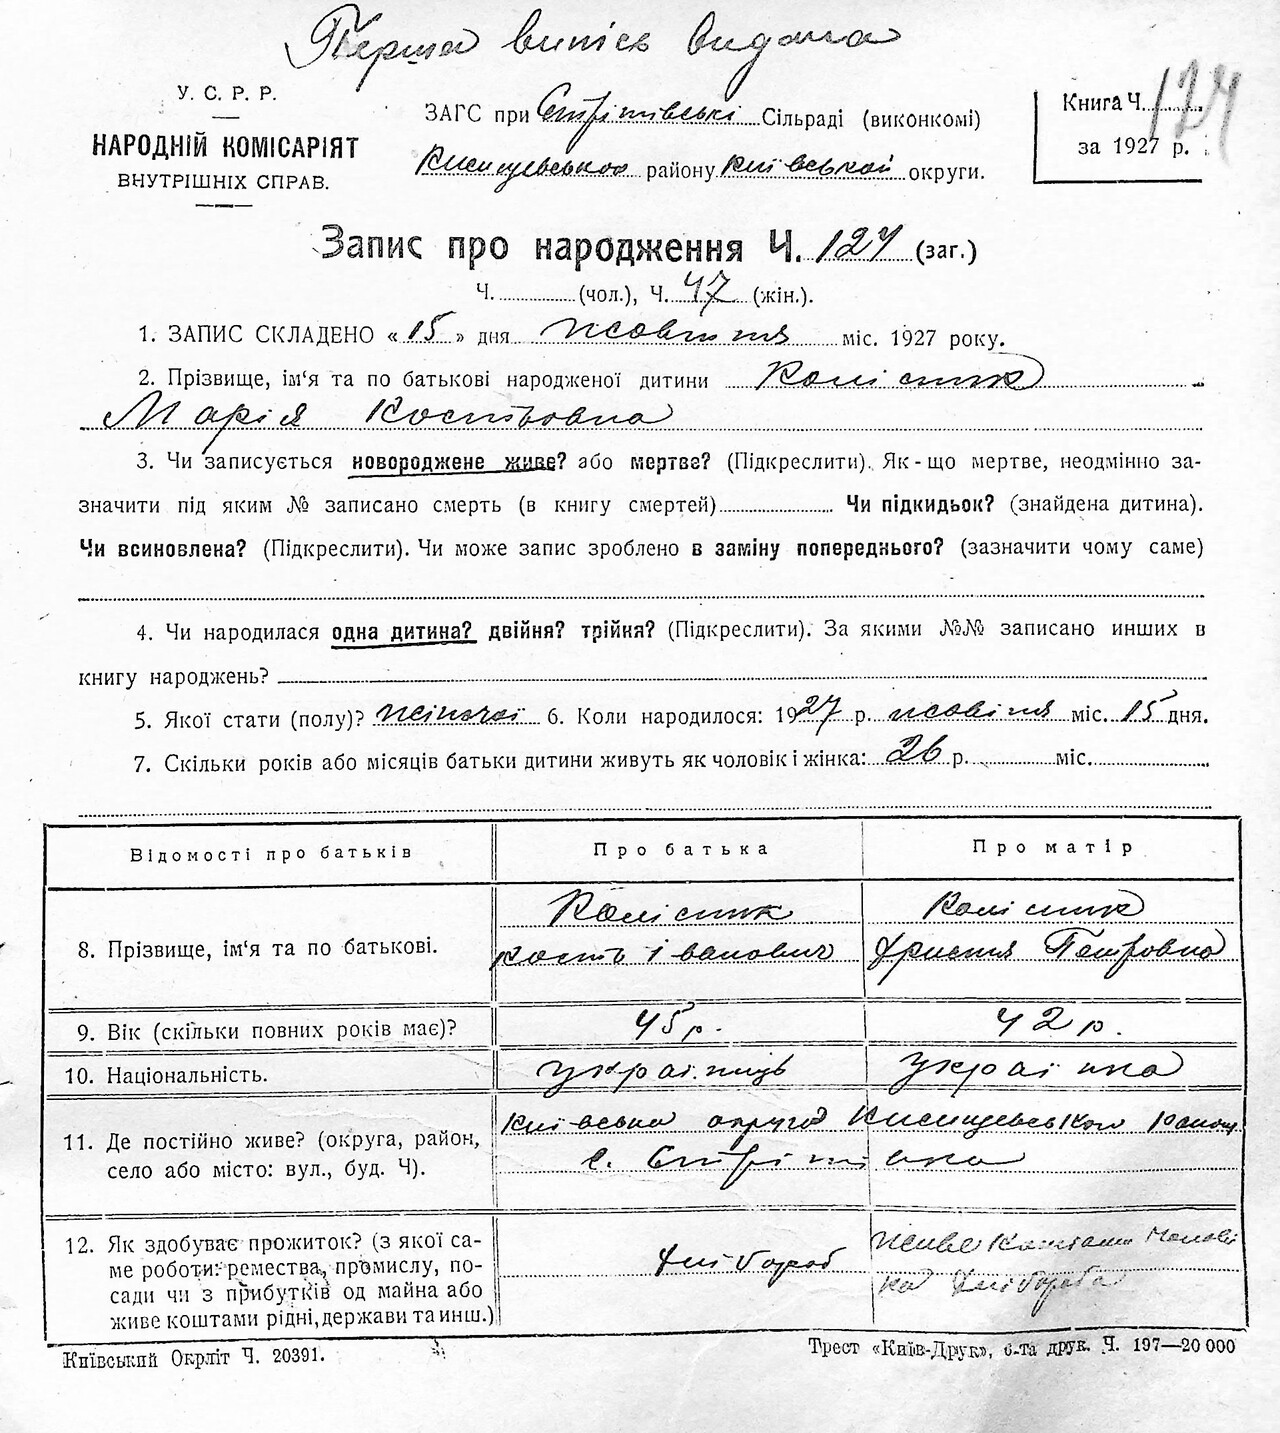 Перша випись видана
У. С. Р. Р.
НАРОДНІЙ КОМІСАРІЯТ
ВНУТРІШНІХ СПРАВ.
ЗАГС при Стрітівські Сільраді (виконкомі)
району Київської округи.
Книга Ч. 127
за 1927 р.
Запис про народження Ч. 127 (заг.)
Ч. (чол.), Ч. 47 (жін.).
1. ЗАПИС СКЛАДЕНО « 15 » дня жовтня міс. 1927 року.
2. Прізвище, ім‘я та по батькові народженої дитини Колісник
Марія Костівовна
3. Чи записується новороджене живе? або мертве? (Підкреслити). Як-що мертве, неодмінно за-
значити під яким № записано смерть (в книгу смертей) Чи підкидьок? (знайдена дитина).
Чи всиновлена? (Підкреслити). Чи може запис зроблено в заміну попереднього? (зазначити чому саме)
4. Чи народилася одна дитина? двійня? трійня? (Підкреслити). За якими №№ записано инших в
книгу народжень?
5. Якої стати (полу)? жіночої 6. Коли народилося: 1927 р. жовтня міс. 15 дня.
7. Скільки років або місяців батьки дитини живуть як чоловік і жінка: 26 р. міс.
Відомості про батьків Про батька Про матір
8. Прізвище, ім‘я та по батькові.
Колісник Колісник
Кость Іванович Христя Петровна
9. Вік (скільки повних років має)? 45 р. 42 р.
10. Національність. українець українка
11. Де постійно живе? (округа, район,
село або місто: вул., буд. Ч).
Київська округа
с. Стрітівка
12. Як здобуває прожиток? (з якої са-
ме роботи: ремества, промислу, по-
сади чи з прибутків од майна або
живе коштами рідні, держави та инш.)
хлібороб живе коштами чолові
ка хлібороба
Київський Окрліт Ч. 20391.
Трест «Київ-Друк», 6-та друк. Ч. 197—20 000